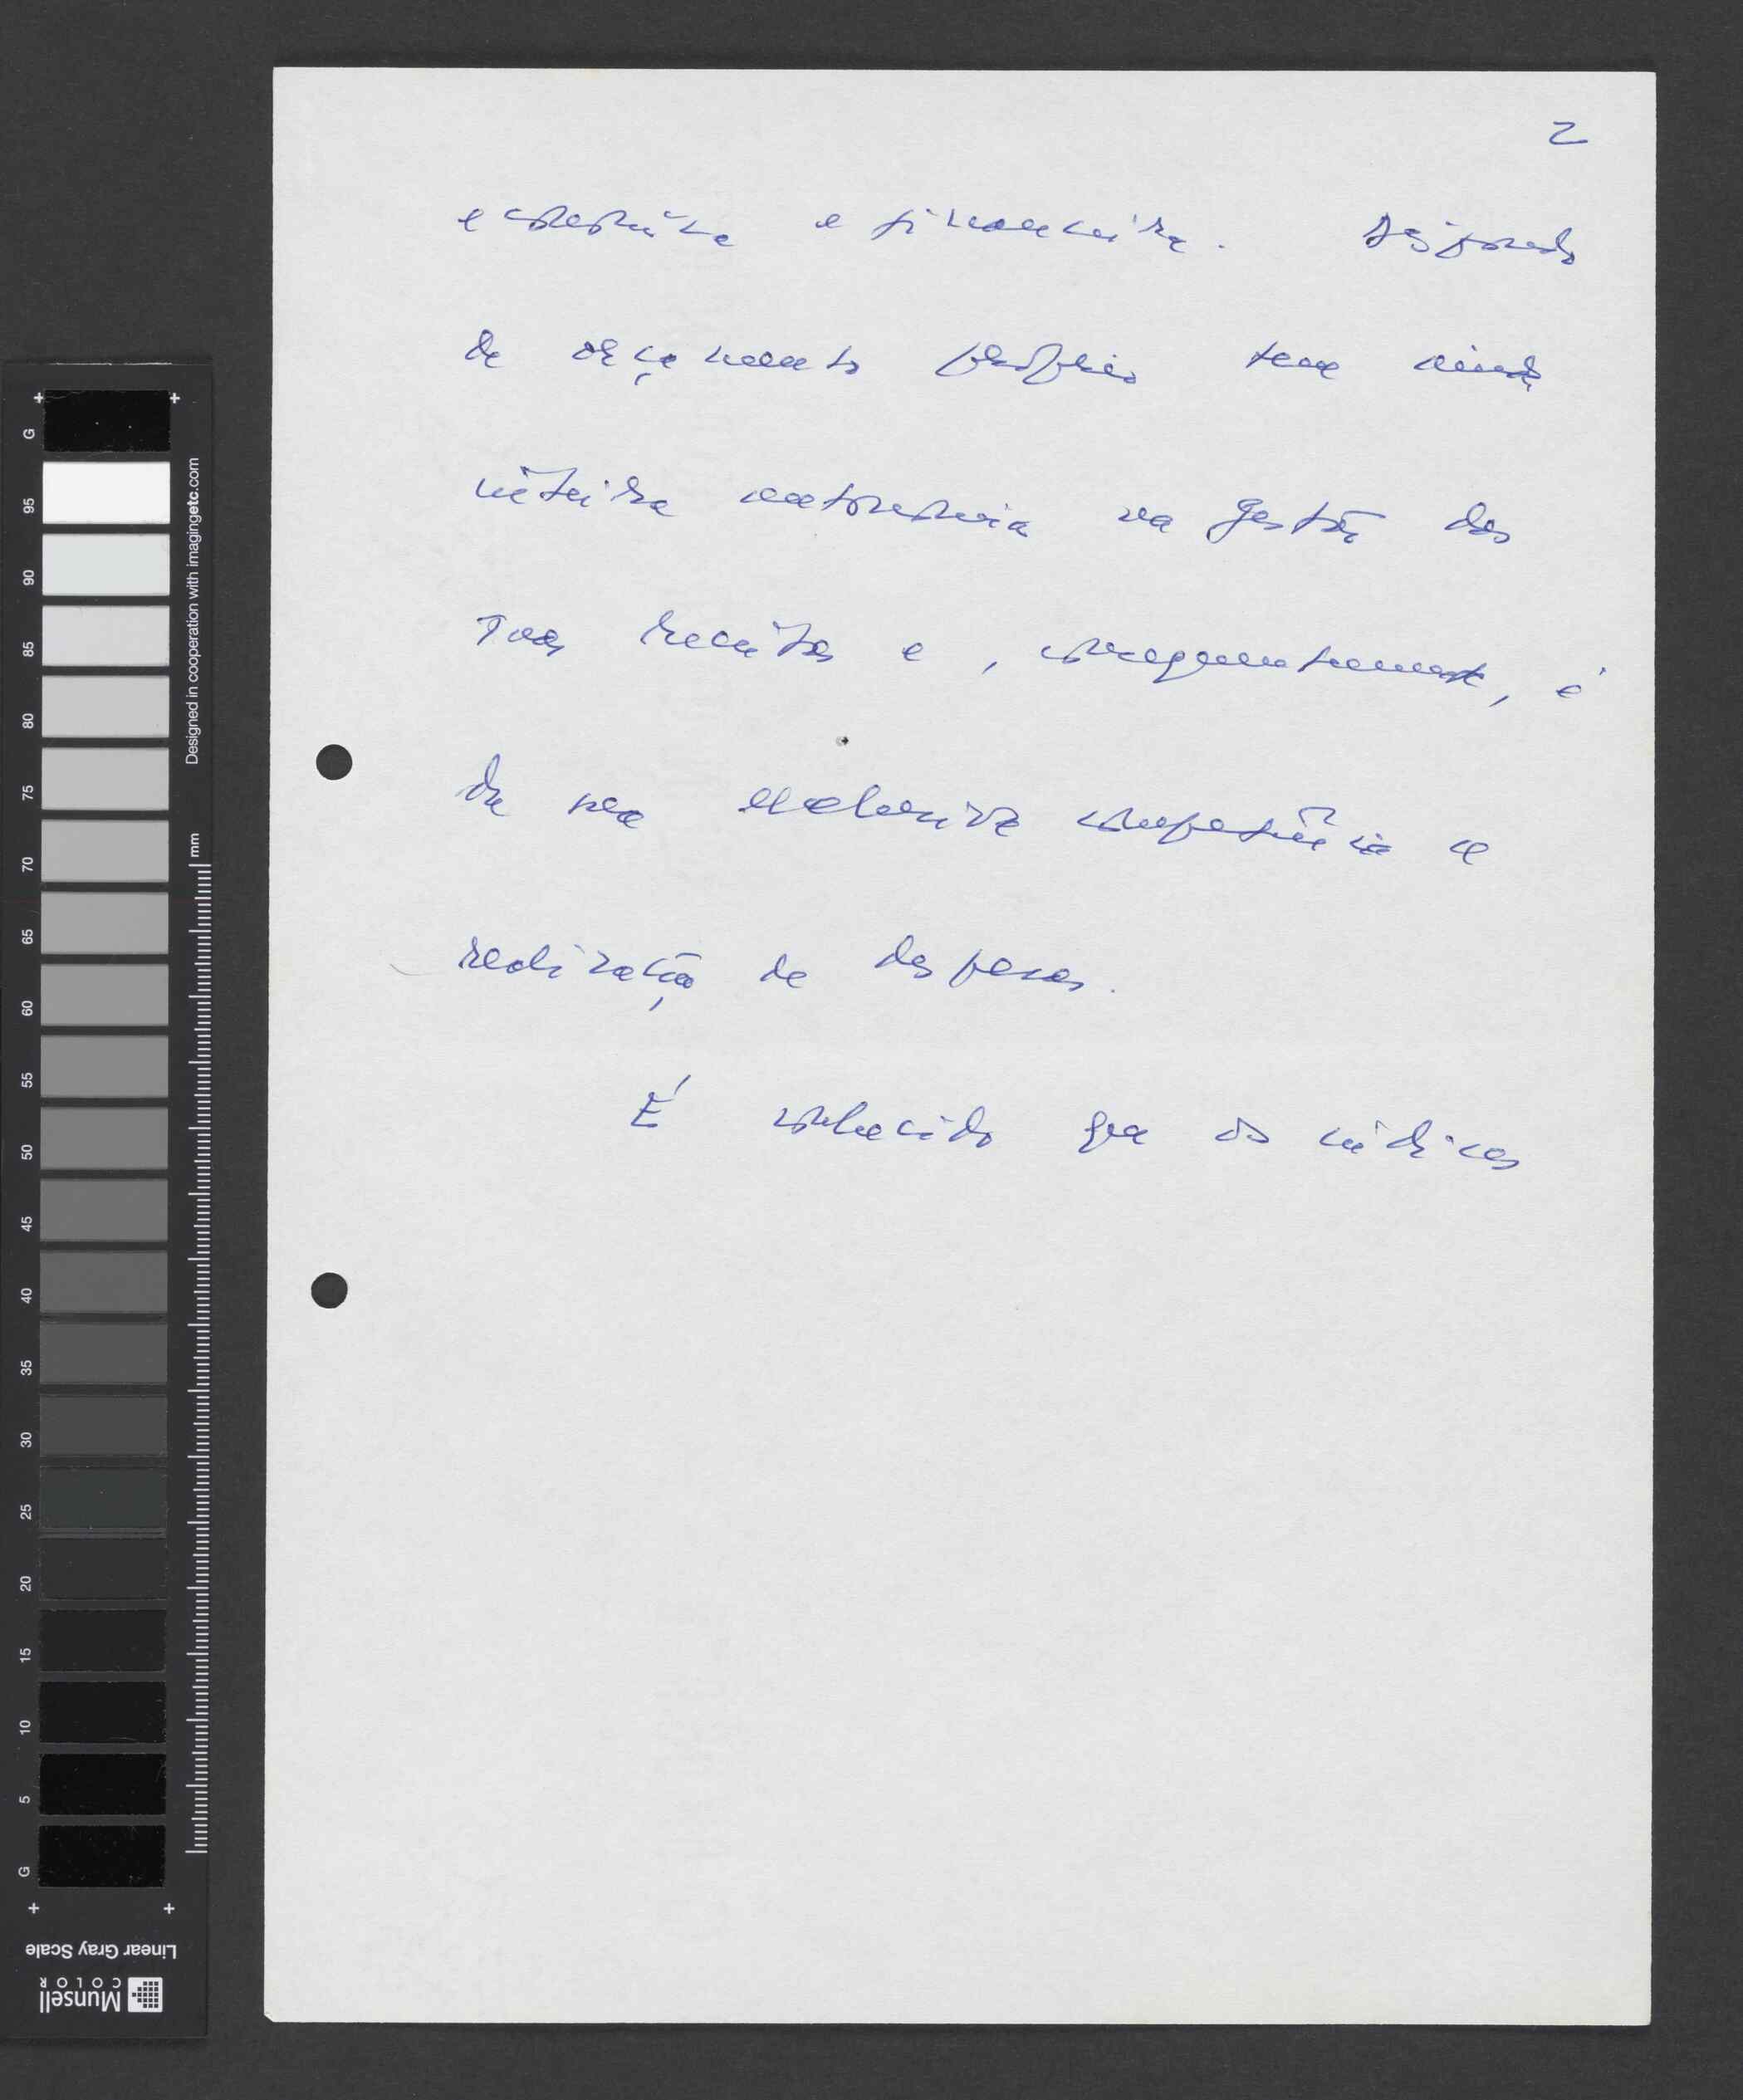 2
económica e financeira. Dispondo
de orçamento próprio tem ainda
inteira autonomia na gestão das
suas receitas e, consequentemente, é
da sua exclusiva competência a
realização de despesas.
É conhecido que os índices
G
95
90
85
80
75
70
65
60
55
50
45
40
35
30
25
20
15
10
5
G
Designed in cooperation with imagingetc.com
mm
Linear Gray Scale
Munsell
COLOR